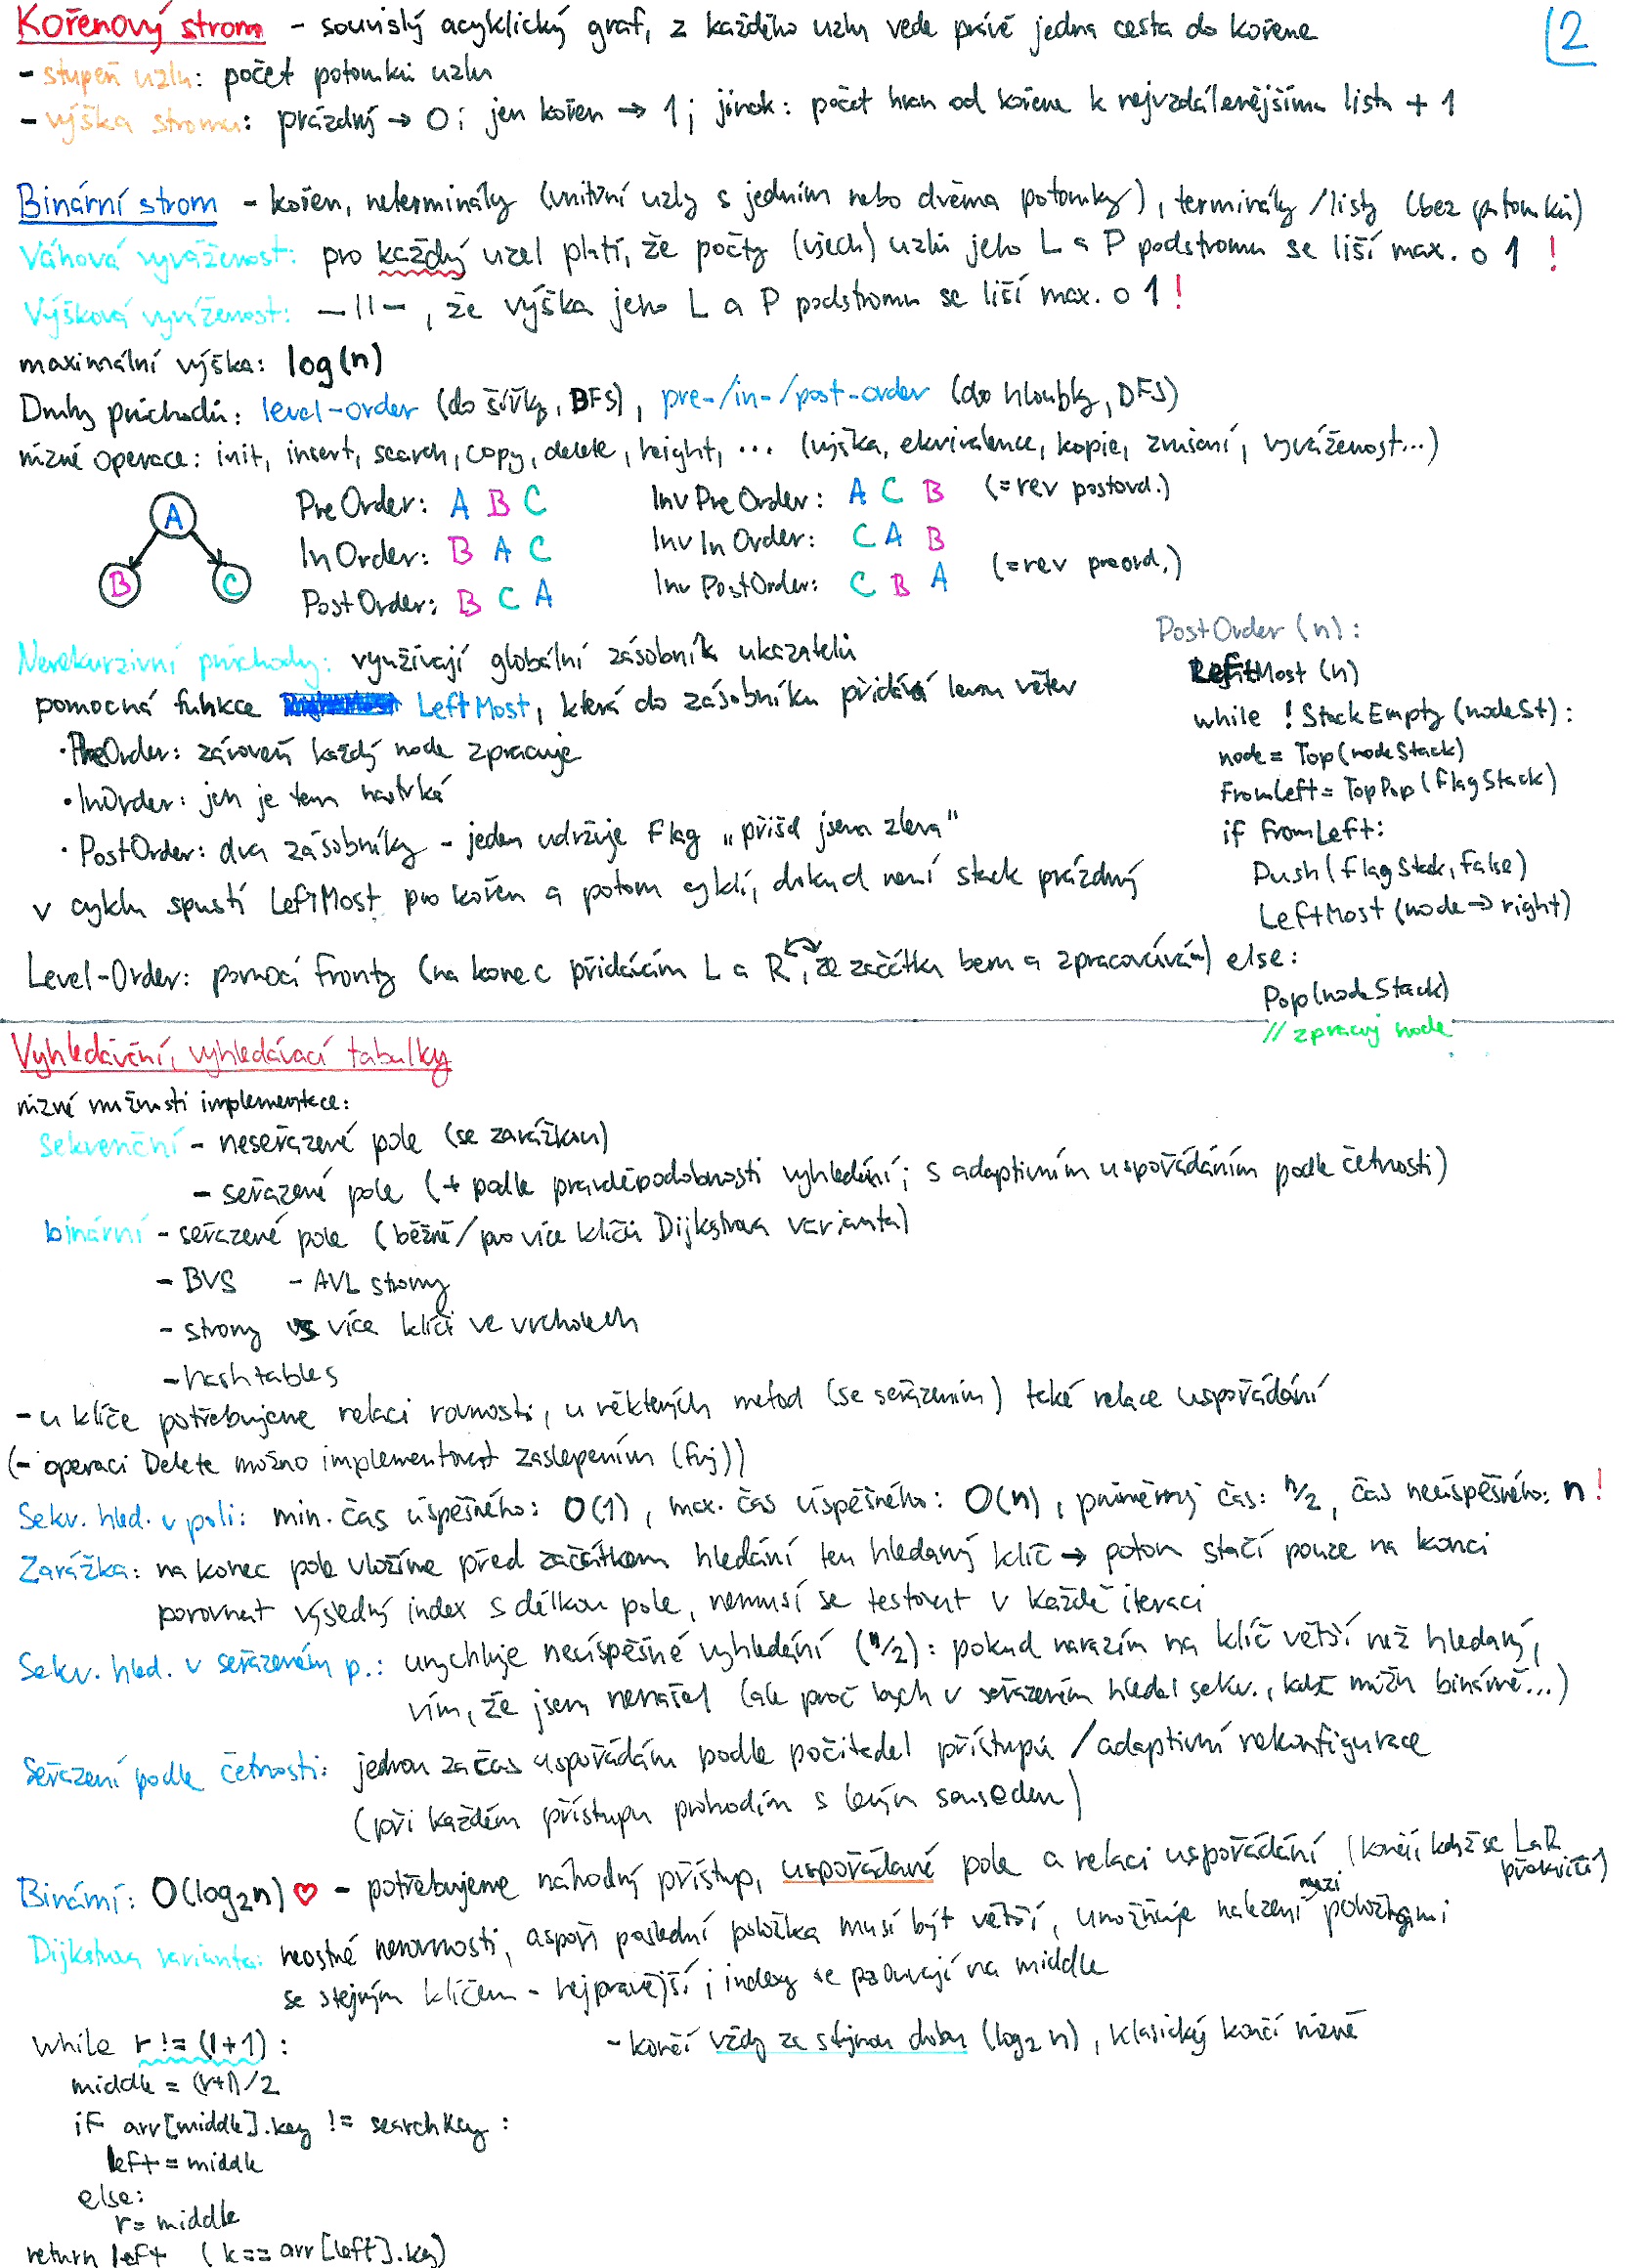 Kořenový strom - souvislý acyklický graf, z každého uzlu vede právě jedna cesta do kořene
2
- stupeň uzlu: počet potomků uzlu
- výška stromu: prázdný → 0; jen kořen → 1; jinak: počet hran od kořene k nejvzdálenějšímu listu + 1
Binární strom - kořen, neterminály (vnitřní uzly s jedním nebo dvěma potomky), terminály/listy (bez potomků)
Váhová vyváženost: pro každý uzel platí, že počty (všech) uzlů jeho L a P podstromu se liší max. o 1 !
Výšková vyváženost: -||-, že výška jeho L a P podstromu se liší max. o 1 !
maximální výška: log(n)
Druhy průchodů: level-order (do šířky, BFS), pre-/in-/post-order (do hloubky, DFS)
různé operace: init, insert, search, copy, delete, height, ... (výška, ekvivalence, kopie, zrušení, vyváženost...)
A
B
C
PreOrder: A B C
InOrder: B A C
PostOrder: B C A
InvPreOrder: A C B (=rev postord.)
InvInOrder: C A B
InvPostOrder: C B A (=rev preord.)
Nerekurzivní průchody: využívají globální zásobník ukazatelů
pomocná funkce LeftMost, která do zásobníku přidává levou větev
· PreOrder: zároveň každý node zpracuje
· InOrder: jen je tam nastrká
· PostOrder: dva zásobníky - jeden udržuje flag „přišel jsem zleva"
v cyklu spustí LeftMost pro kořen a potom cyklí, dokud není stack prázdný
Level-Order: pomocí fronty (na konec přidávám L a R, ze začátku beru a zpracovávám)
PostOrder(n):
LeftMost(n)
while !StackEmpty(nodeSt):
node = Top(nodeStack)
fromLeft = TopPop(flagStack)
if fromLeft:
Push(flagStack, false)
LeftMost(node→right)
else:
Pop(nodeStack)
// zpracuj node
Vyhledávání, vyhledávací tabulky
různé možnosti implementace:
sekvenční - neseřazené pole (se zarážkou)
- seřazené pole (+ podle pravděpodobnosti vyhledání; s adaptivním uspořádáním podle četnosti)
binární - seřazené pole (běžné/pro více klíčů Dijkstrova varianta)
- BVS - AVL stromy
- stromy s více klíči ve vrcholech
- hashtables
- u klíče potřebujeme relaci rovnosti, u některých metod (se seřazením) také relace uspořádání
(- operaci Delete možno implementovat zaslepením (fuj))
Sekv. hled. v poli: min. čas úspěšného: O(1), max. čas úspěšného: O(n), průměrný čas: n/2, čas neúspěšného: n !
Zarážka: na konec pole vložíme před začátkem hledání ten hledaný klíč → potom stačí pouze na konci
porovnat výsledný index s délkou pole, nemusí se testovat v každé iteraci
Sekv. hled. v seřazeném p.: urychluje neúspěšné vyhledání (n/2): pokud narazím na klíč větší než hledaný,
vím, že jsem nenašel (ale proč bych v seřazeném hledal sekv., když můžu binárně...)
Seřazení podle četnosti: jednou začas uspořádám podle počitadel přístupů/adaptivní rekonfigurace
(při každém přístupu prohodím s levým sousedem)
Binární: O(log₂n) ♥ - potřebujeme náhodný přístup, uspořádané pole a relaci uspořádání (končí když se L a R
překříží)
Dijkstrova varianta: neostré nerovnosti, aspoň poslední položka musí být větší, umožňuje nalezení mezi položkami
se stejným klíčem - nejpravější; indexy se posouvají na middle
- končí vždy za stejnou dobu (log₂ n), klasický končí různě
while r != (l+1):
middle = (r+l)/2
if arr[middle].key != searchKey:
left = middle
else:
r = middle
return left (k == arr[left].key)